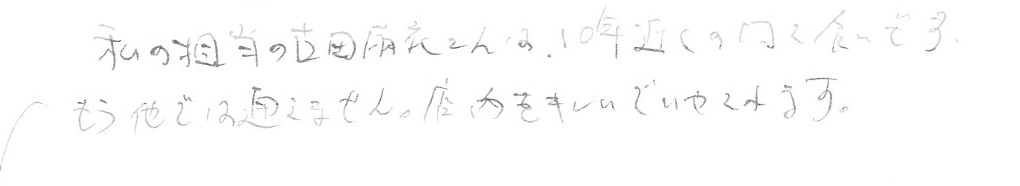 私の担当の吉田麻衣さんは、10年近くの
もう他では通えません。店内もキレイでいやされます。